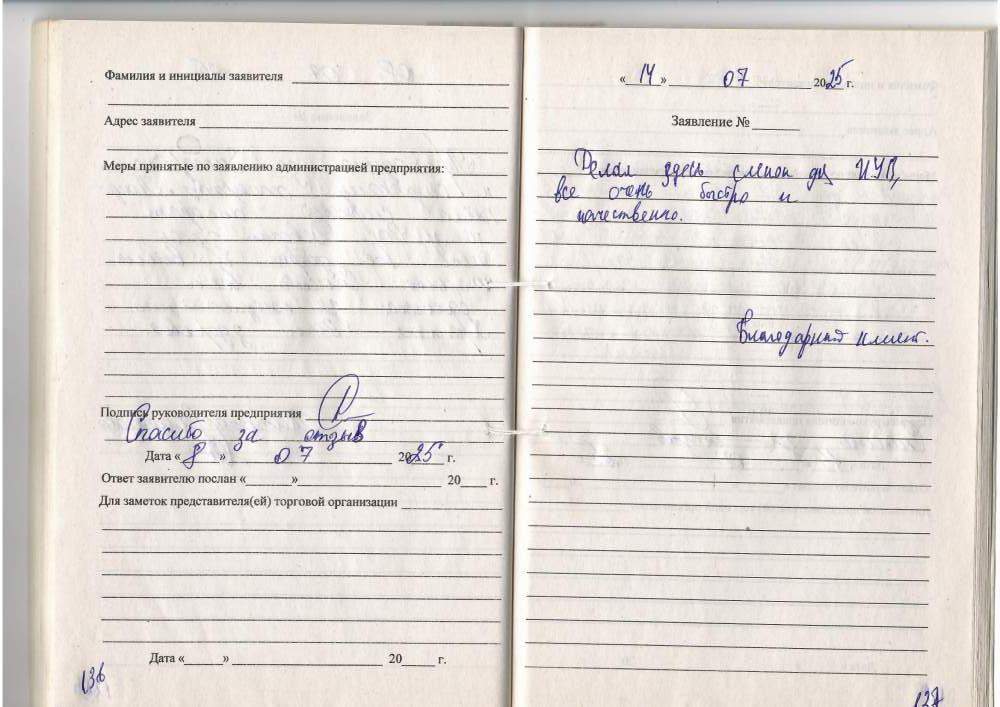 Фамилия и инициалы заявителя
Адрес заявителя
Меры принятые по заявлению администрацией предприятия:
Подпись руководителя предприятия
Спасибо за отзыв
Дата « 8 » 07 2025 г.
Ответ заявителю послан « » 20 г.
Для заметок представителя(ей) торговой организации
Дата « » 20 г.
136
« 14 » 07 2025 г.
Заявление №
Делал здесь слепок для
все очень быстро и
качественно.
Благодарный клиент.
137